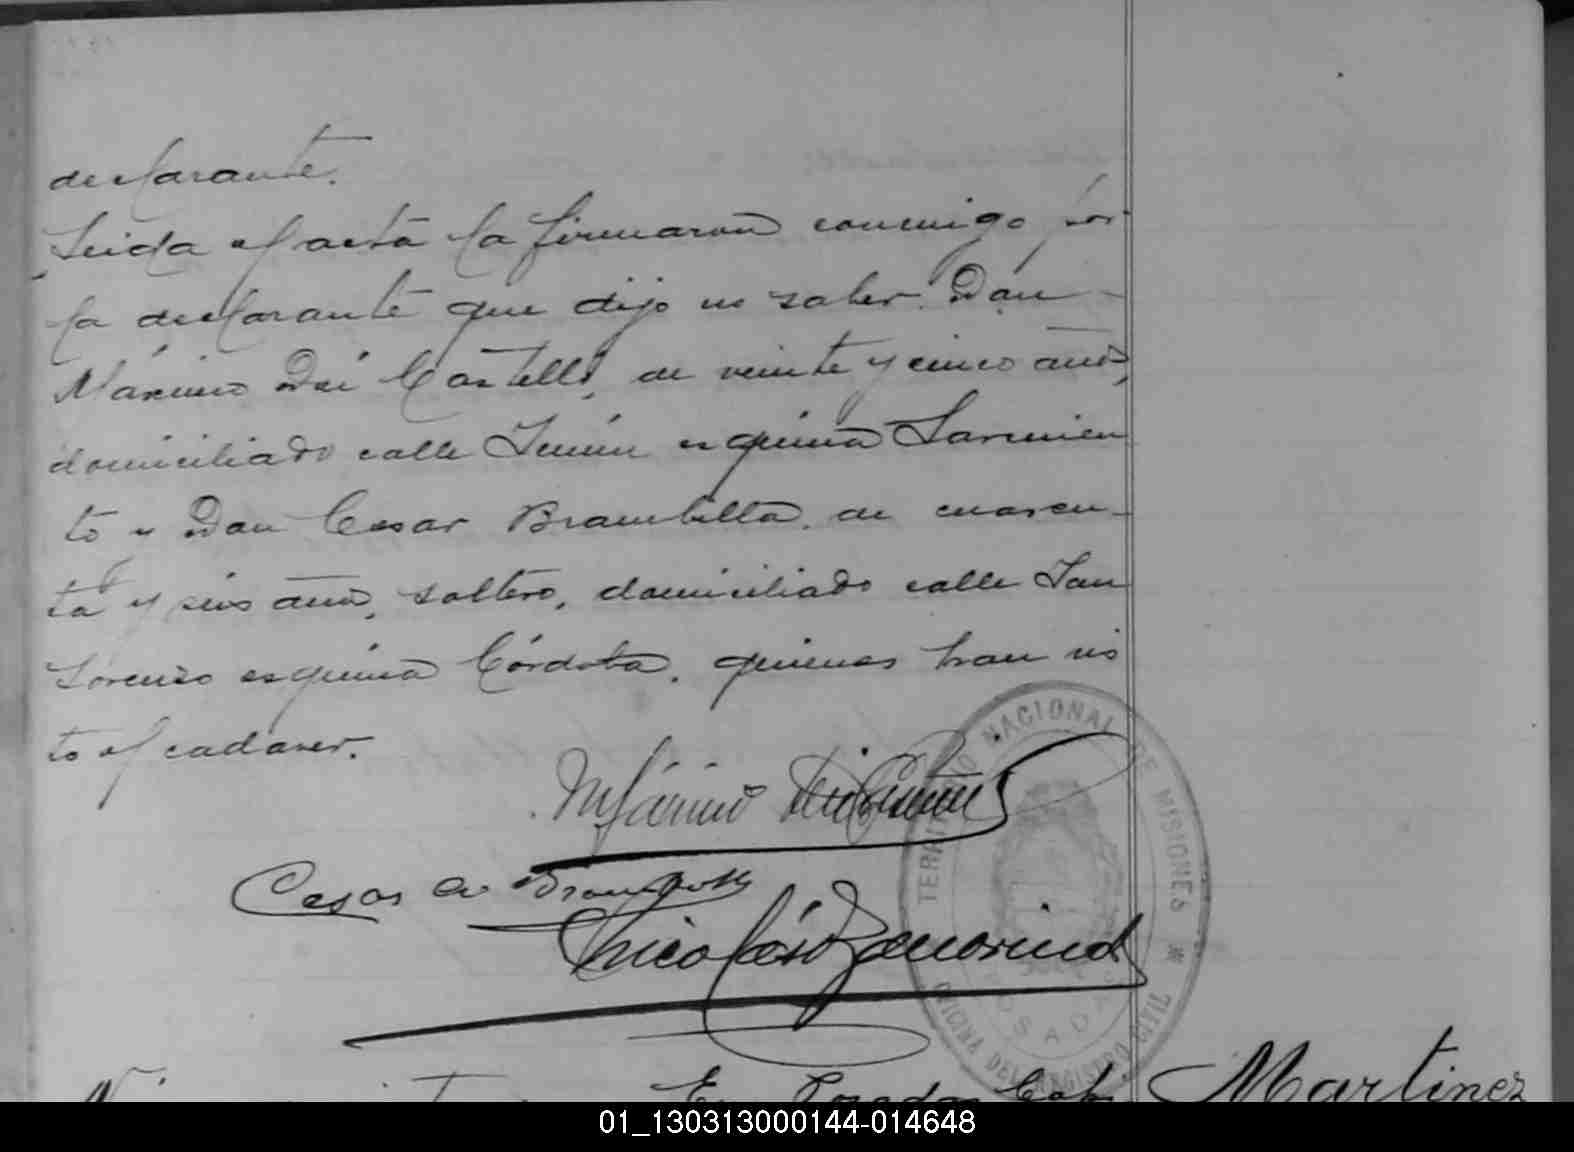 declarante.
Leida el acta la firmaron conmigo por
la declarante que dijo no saber Don
Máximo Dei Castelli, de veinte y cinco años,
domiciliado calle Junín esquina Sarmien
to y Don Cesar Brambilla, de cuaren-
ta y seis años, soltero, domiciliado calle San
Lorenzo esquina Córdoba, quienes han vis
to el cadaver.
Máximo Dei Castelli
Cesar
Nicolás
TERRITORIO NACIONAL DE MISIONES * OFICINA DEL REGISTRO CIVIL
POSADAS
En Posadas Cap
Martinez
01_130313000144-014648